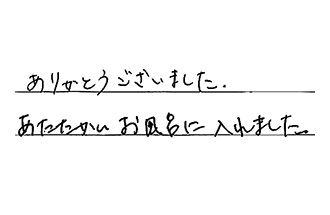 ありがとうございました.
あたたかい お風呂に 入れました。